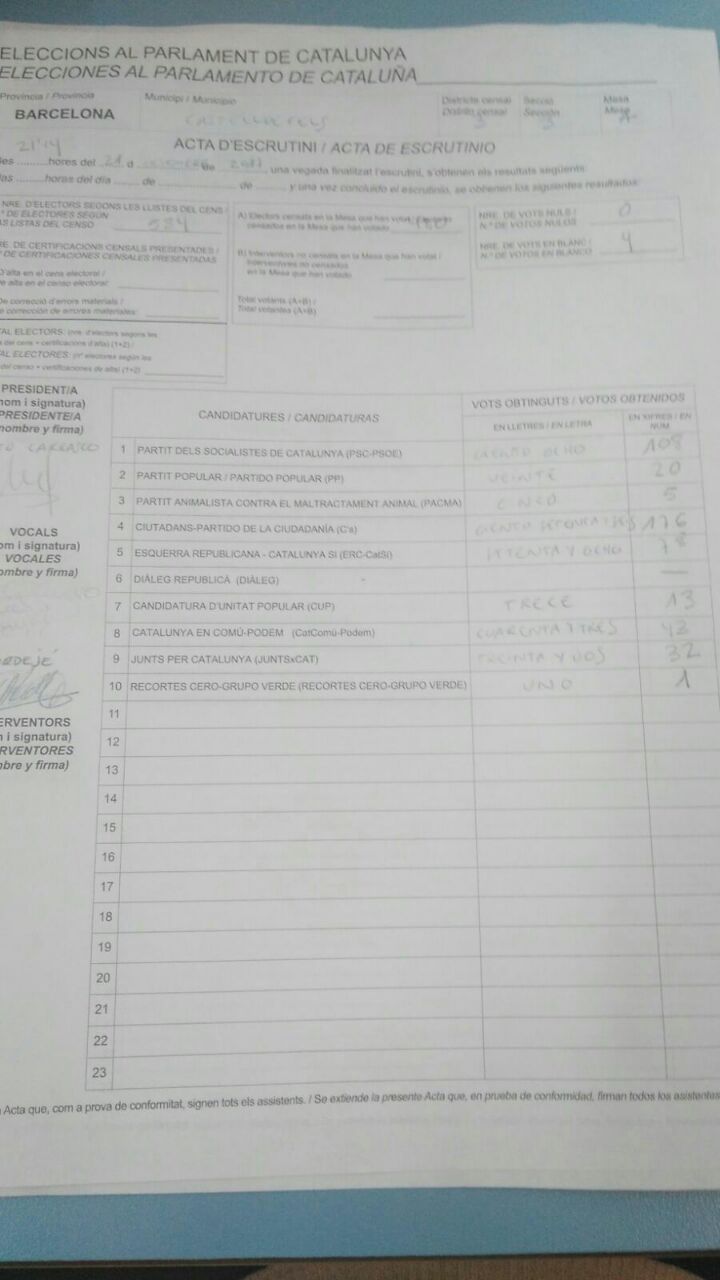 ELECCIONS AL PARLAMENT DE CATALUNYA
ELECCIONES AL PARLAMENTO DE CATALUÑA
Província / Provincia
Municipi / Municipio
Districte censal
Distrito censal
Secció
Sección
Mesa
Mesa
BARCELONA
ACTA D'ESCRUTINI / ACTA DE ESCRUTINIO
hores del 21 d de 2017, una vegada finalitzat l'escrutini, s'obtenen els resultats següents:
las ......... horas del día ........ de ................ de ........ y una vez concluido el escrutinio, se obtienen los siguientes resultados:
NRE. D'ELECTORS SEGONS LES LLISTES DEL CENS /
º DE ELECTORES SEGÚN
AS LISTAS DEL CENSO 584
RE. DE CERTIFICACIONS CENSALS PRESENTADES /
º DE CERTIFICACIONES CENSALES PRESENTADAS
D'alta en el cens electoral /
e alta en el censo electoral:
De correcció d'errors materials /
e corrección de errores materiales:
TAL ELECTORS: (nre. d'electors segons les
s del cens + certificacions d'alta) (1+2) /
AL ELECTORES: (nº electores según les
del censo + certificaciones de alta) (1+2)
A) Electors censats en la Mesa que han votat /
censados en la Mesa que han votado 480
B) Interventors no censats en la Mesa que han votat /
Interventores no censados
en la Mesa que han votado
Total votants (A+B) /
Total votantes (A+B)
NRE. DE VOTS NULS / 0
N.º DE VOTOS NULOS
NRE. DE VOTS EN BLANC / 4
N.º DE VOTOS EN BLANCO
PRESIDENT/A
nom i signatura)
PRESIDENTE/A
nombre y firma)
CARRASCO
VOCALS
om i signatura)
VOCALES
ombre y firma)
ERVENTORS
n i signatura)
RVENTORES
bre y firma)
CANDIDATURES / CANDIDATURAS
VOTS OBTINGUTS / VOTOS OBTENIDOS
EN LLETRES / EN LETRA
EN XIFRES / EN NÚM.
1 PARTIT DELS SOCIALISTES DE CATALUNYA (PSC-PSOE) CIENTO OCHO 108
2 PARTIT POPULAR / PARTIDO POPULAR (PP) VEINTE 20
3 PARTIT ANIMALISTA CONTRA EL MALTRACTAMENT ANIMAL (PACMA) CINCO 5
4 CIUTADANS-PARTIDO DE LA CIUDADANÍA (C's) CIENTO 176
5 ESQUERRA REPUBLICANA - CATALUNYA SÍ (ERC-CatSí) SETENTA Y OCHO 78
6 DIÀLEG REPUBLICÀ (DIÀLEG) —
7 CANDIDATURA D'UNITAT POPULAR (CUP) TRECE 13
8 CATALUNYA EN COMÚ-PODEM (CatComú-Podem) CUARENTA Y TRES 43
9 JUNTS PER CATALUNYA (JUNTSxCAT) TREINTA Y DOS 32
10 RECORTES CERO-GRUPO VERDE (RECORTES CERO-GRUPO VERDE) UNO 1
11
12
13
14
15
16
17
18
19
20
21
22
23
Acta que, com a prova de conformitat, signen tots els assistents. / Se extiende la presente Acta que, en prueba de conformidad, firman todos los asistentes